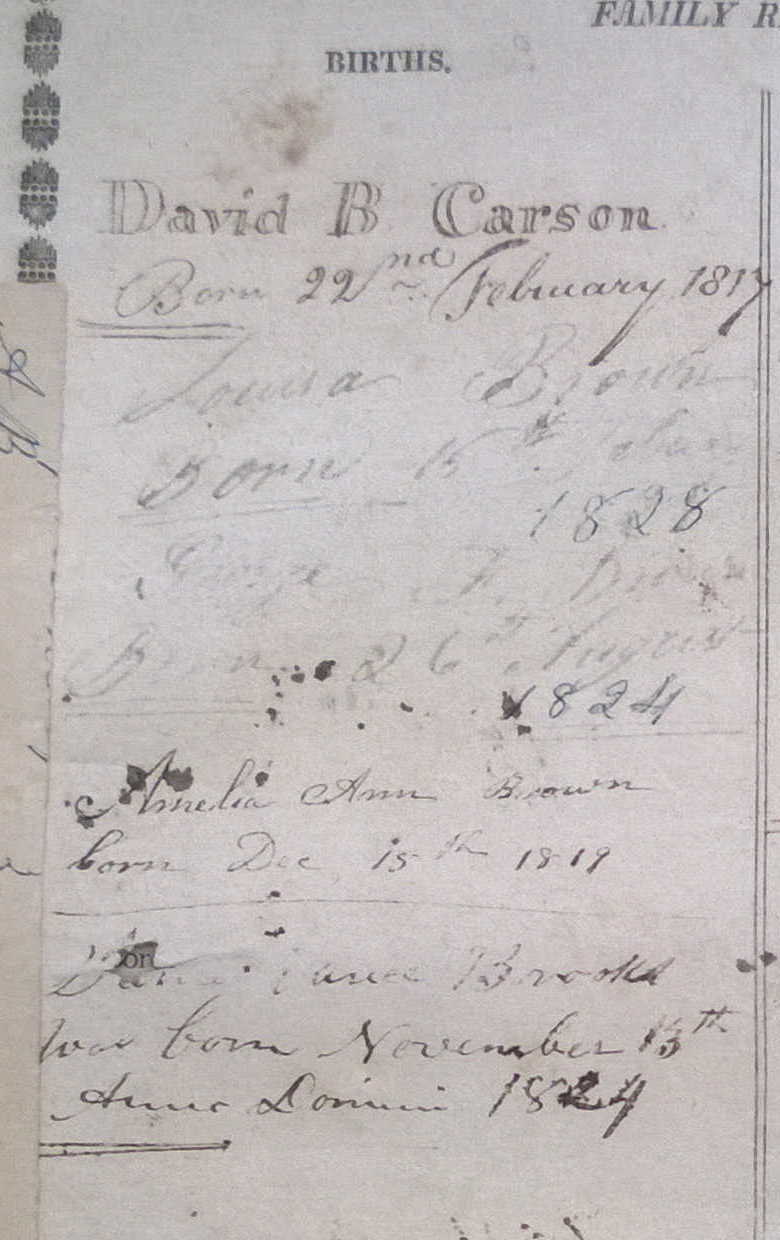 FAMILY R
BIRTHS.
David B Carson
Born 22nd February 1817
Louisa Brown
Born 15th Jan
1828
George Brown
Born 26th August
1824
Amelia Ann Brown
born Dec 15th 1819
on
Brooks
was born November 13th
Anno Domini 1824